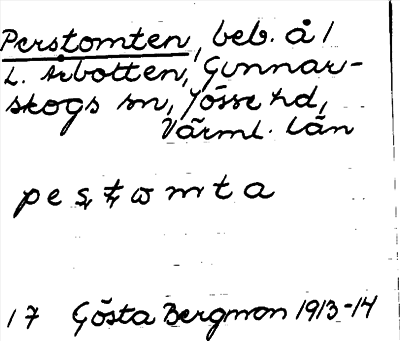 Perstomten, beb. å /
L. Arbotten, Gunnar-
skogs sn, Jösse hd,
Värml. län
pesţωmta
17 Gösta Bergman 1913-14